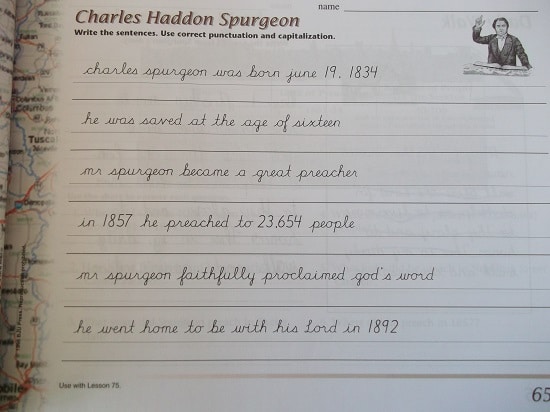 name
Charles Haddon Spurgeon
Write the sentences. Use correct punctuation and capitalization.
charles spurgeon was born june 19, 1834
he was saved at the age of sixteen
mr spurgeon became a great preacher
in 1857 he preached to 23,654 people
mr spurgeon faithfully proclaimed god's word
he went home to be with his Lord in 1892
Use with Lesson 75.
65